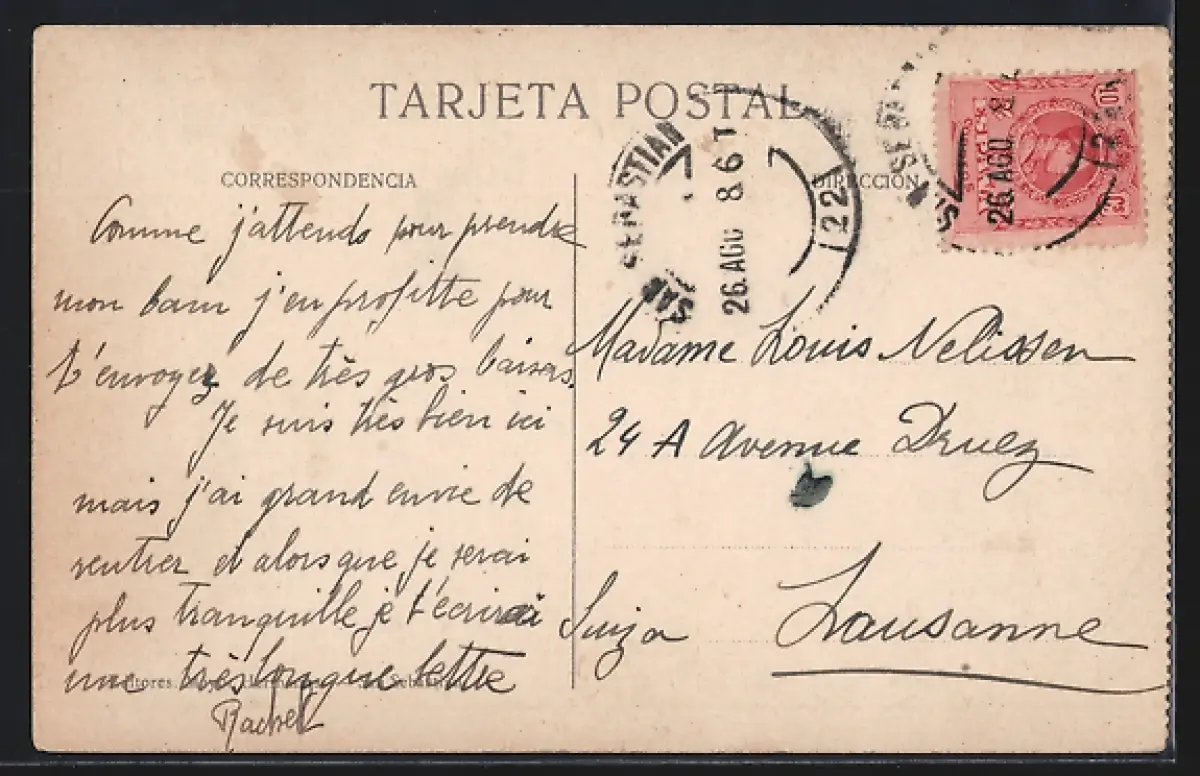 TARJETA POSTAL
CORRESPONDENCIA
DIRECCIÓN
SAN SEBASTIAN
26.AGO 8 6T
(22)
26.AGO 8
Comme j'attends pour prendre
mon bain j'en profitte pour
t'envoyez de très gros baisers.
Je suis très bien ici
mais j'ai grand envie de
rentrer et alors que je serai
plus tranquille je t'écrirai
une très longue lettre
Rachel
Madame Louis Nelissen
24 A Avenue Druez
Lausanne
Suiza